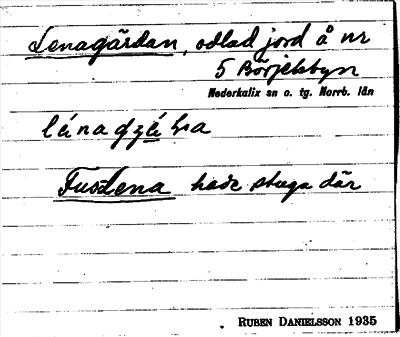 Lenagärdan, odlad jord å nr
5 Börjelsbyn
Nederkalix sn o. tg. Norrb. län
Lena hade stuga där
RUBEN DANIELSSON 1935